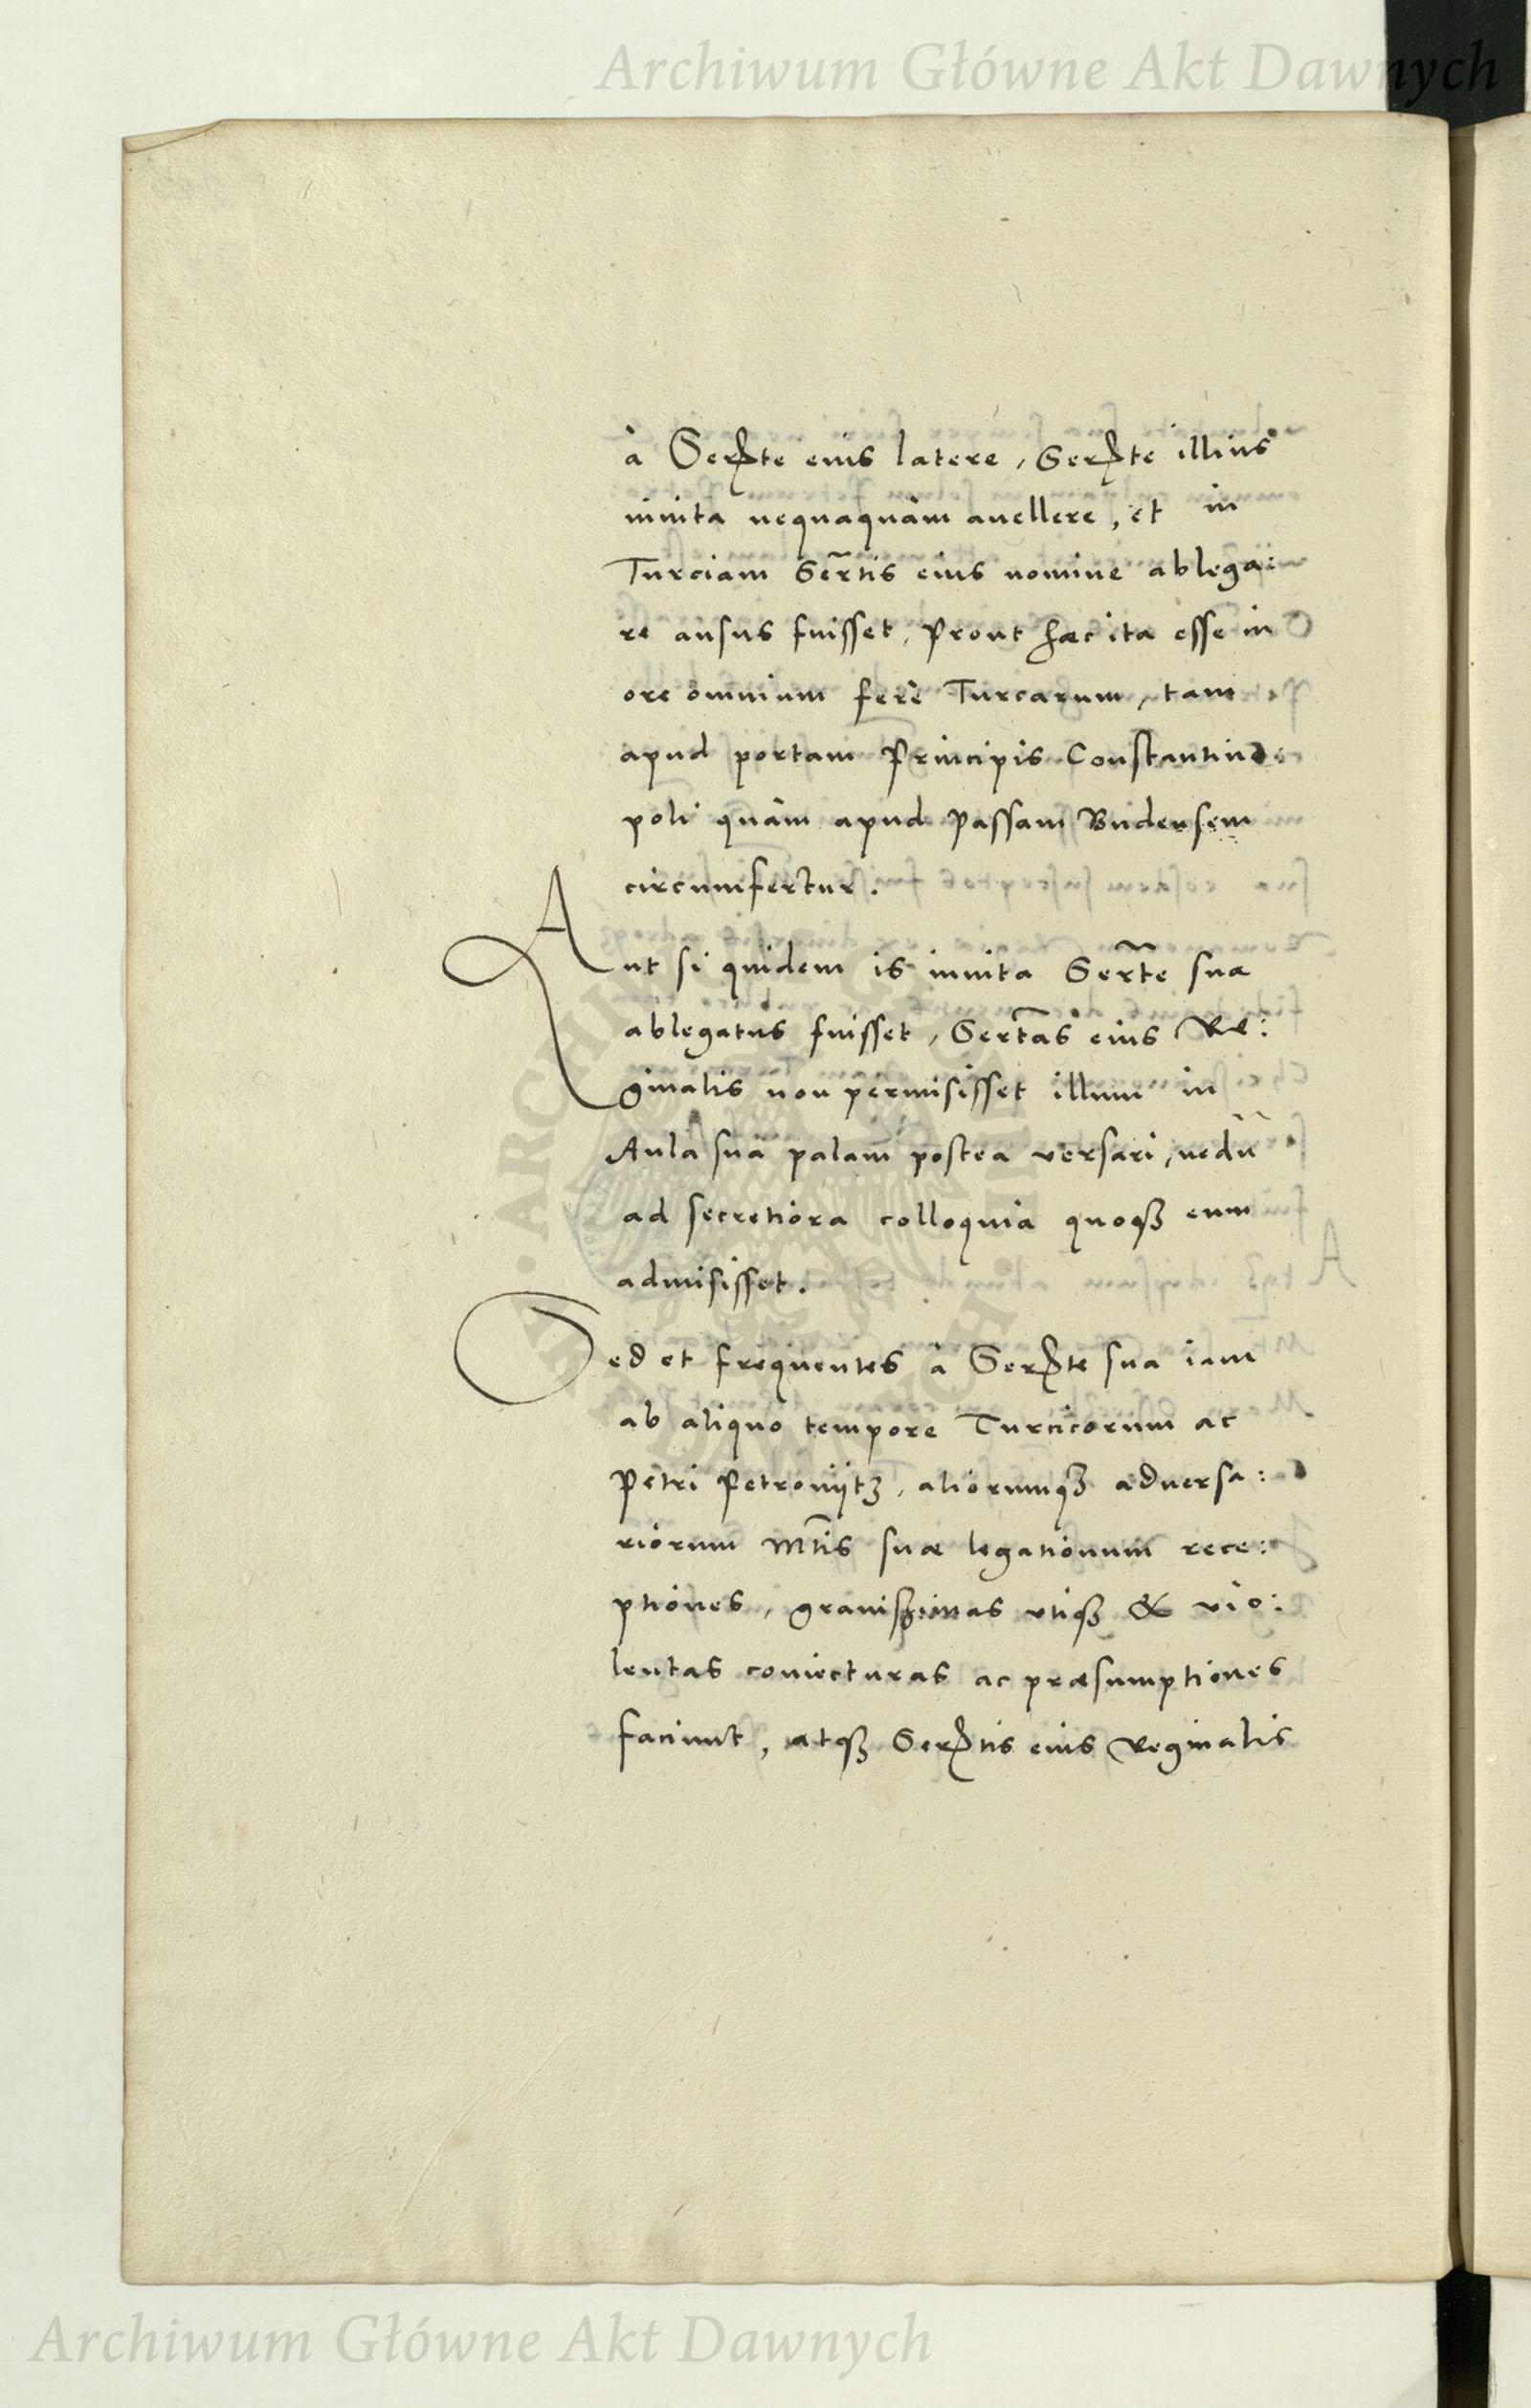 Archiwum Główne Akt Dawnych
à Serte eius latere, Serte illius
inuita nequaquàm auellere, et in
Turciam Sertis eius nomine ablega:
re ausus fuisset, Prout hæc ita esse in
ore omnium ferè Turcarum, tam
apud portam Principis Constantino:
poli quàm apud Passam Budensem
circumfertur.
Aut si quidem is inuita Serte sua
ablegatus fuisset, Sertas eius Re:
ginalis non permisisset illum in
Aula sua palam postea versari, nedū
ad secretiora colloquia quoqꝫ eum
admisisset.
Sed et frequentes à Serte sua iam
ab aliquo tempore Turcicorum ac
Petri Petrouijtz, aliorumqꝫ aduersa:
riorum Mtis suæ legationum rece:
ptiones, grauißimas vtiqꝫ & vio:
lentas coniecturas ac præsumptiones
faciunt, atqꝫ Sertis eius Reginalis
Archiwum Główne Akt Dawnych